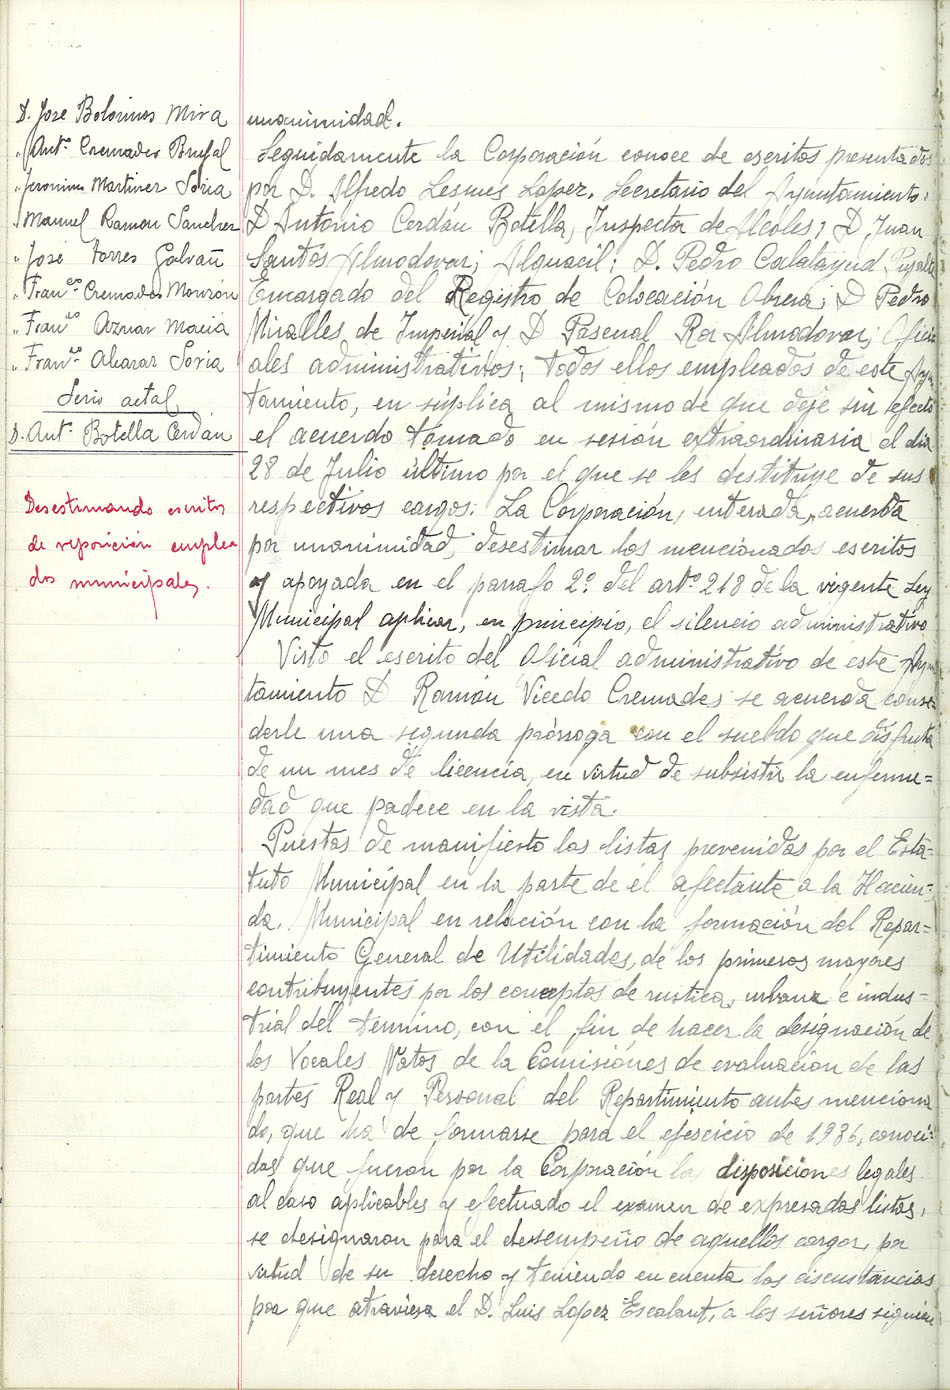 D. Jose Bolorinos Mira
" Antº Cremades Brufal
" Jeronimo Martinez Soria
" Manuel Ramon Sanchez
" Jose Torres Galvañ
" Franco Cremades Monzón
" Franco Aznar Maciá
" Franco Alcaraz Soria
Serio actal
D. Antº Botella Cerdán
Desestimando escritos
de reposición emplea
dos municipales.
unanimidad.
Seguidamente la Corporación conoce de escritos presentados
por D. Alfredo Lesmes Lopez, Secretario del Ayuntamiento;
D Antonio Cerdán Botella, Inspector de Alcoles; D. Juan
Santos Almodovar; Alguacil; D. Pedro Calatayud Pujalte
Encargado del Registro de Colocación Obrera; D Pedro
Miralles de Imperial y D Pascual Ros Almodovar; Ofici
ales administrativos; todos ellos empleados de este Ayun
tamiento, en súplica al mismo de que deje sin efecto
el acuerdo tomado en sesión extraordinaria el dia
28 de Julio último por el que se les destituye de sus
respectivos cargos: La Corporación, enterada, acuerda
por unanimidad, desestimar los mencionados escritos
y apoyada en el parrafo 2º del artº 218 de la vigente Ley
Municipal aplicar, en principio, el silencio administrativo
Visto el escrito del Oficial administrativo de este Ayun
tamiento D Ramón Vicedo Cremades se acuerda conce-
derle una segunda prórroga con el sueldo que disfruta
de un mes de licencia, en virtud de subsistir la enferme=
dad que padece en la vista.
Puestas de manifiesto las listas prevenidas por el Esta=
tuto Municipal en la parte de el afectante a la Hacien=
da, Municipal en relación con la formación del Repar=
timiento General de Utilidades, de los primeros mayores
contribuyentes por los conceptos de rustica, urbana e indus=
trial del termino, con el fin de hacer la designación de
los Vocales Natos de la Comisiónes de evaluación de las
partes Real y Personal del Repartimiento antes menciona
do, que ha de formarse para el ejercicio de 1936, conoci=
das que fueron por la Corporación las disposiciones legales
al caso aplicables y efectuado el examen de expresadas listas,
se designaron para el desempeño de aquellos cargos, por
virtud de su derecho y teniendo en cuenta las circustancias
por que atraviesa el D. Luis Lopez Escalant, a los señores siguien